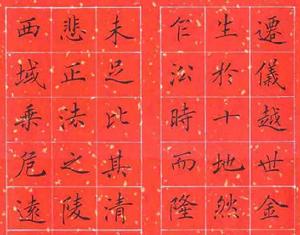 遷儀越世金
生於十地然
乍㳂時而隆
未足比其清
悲正法之陵
西域乘危遠